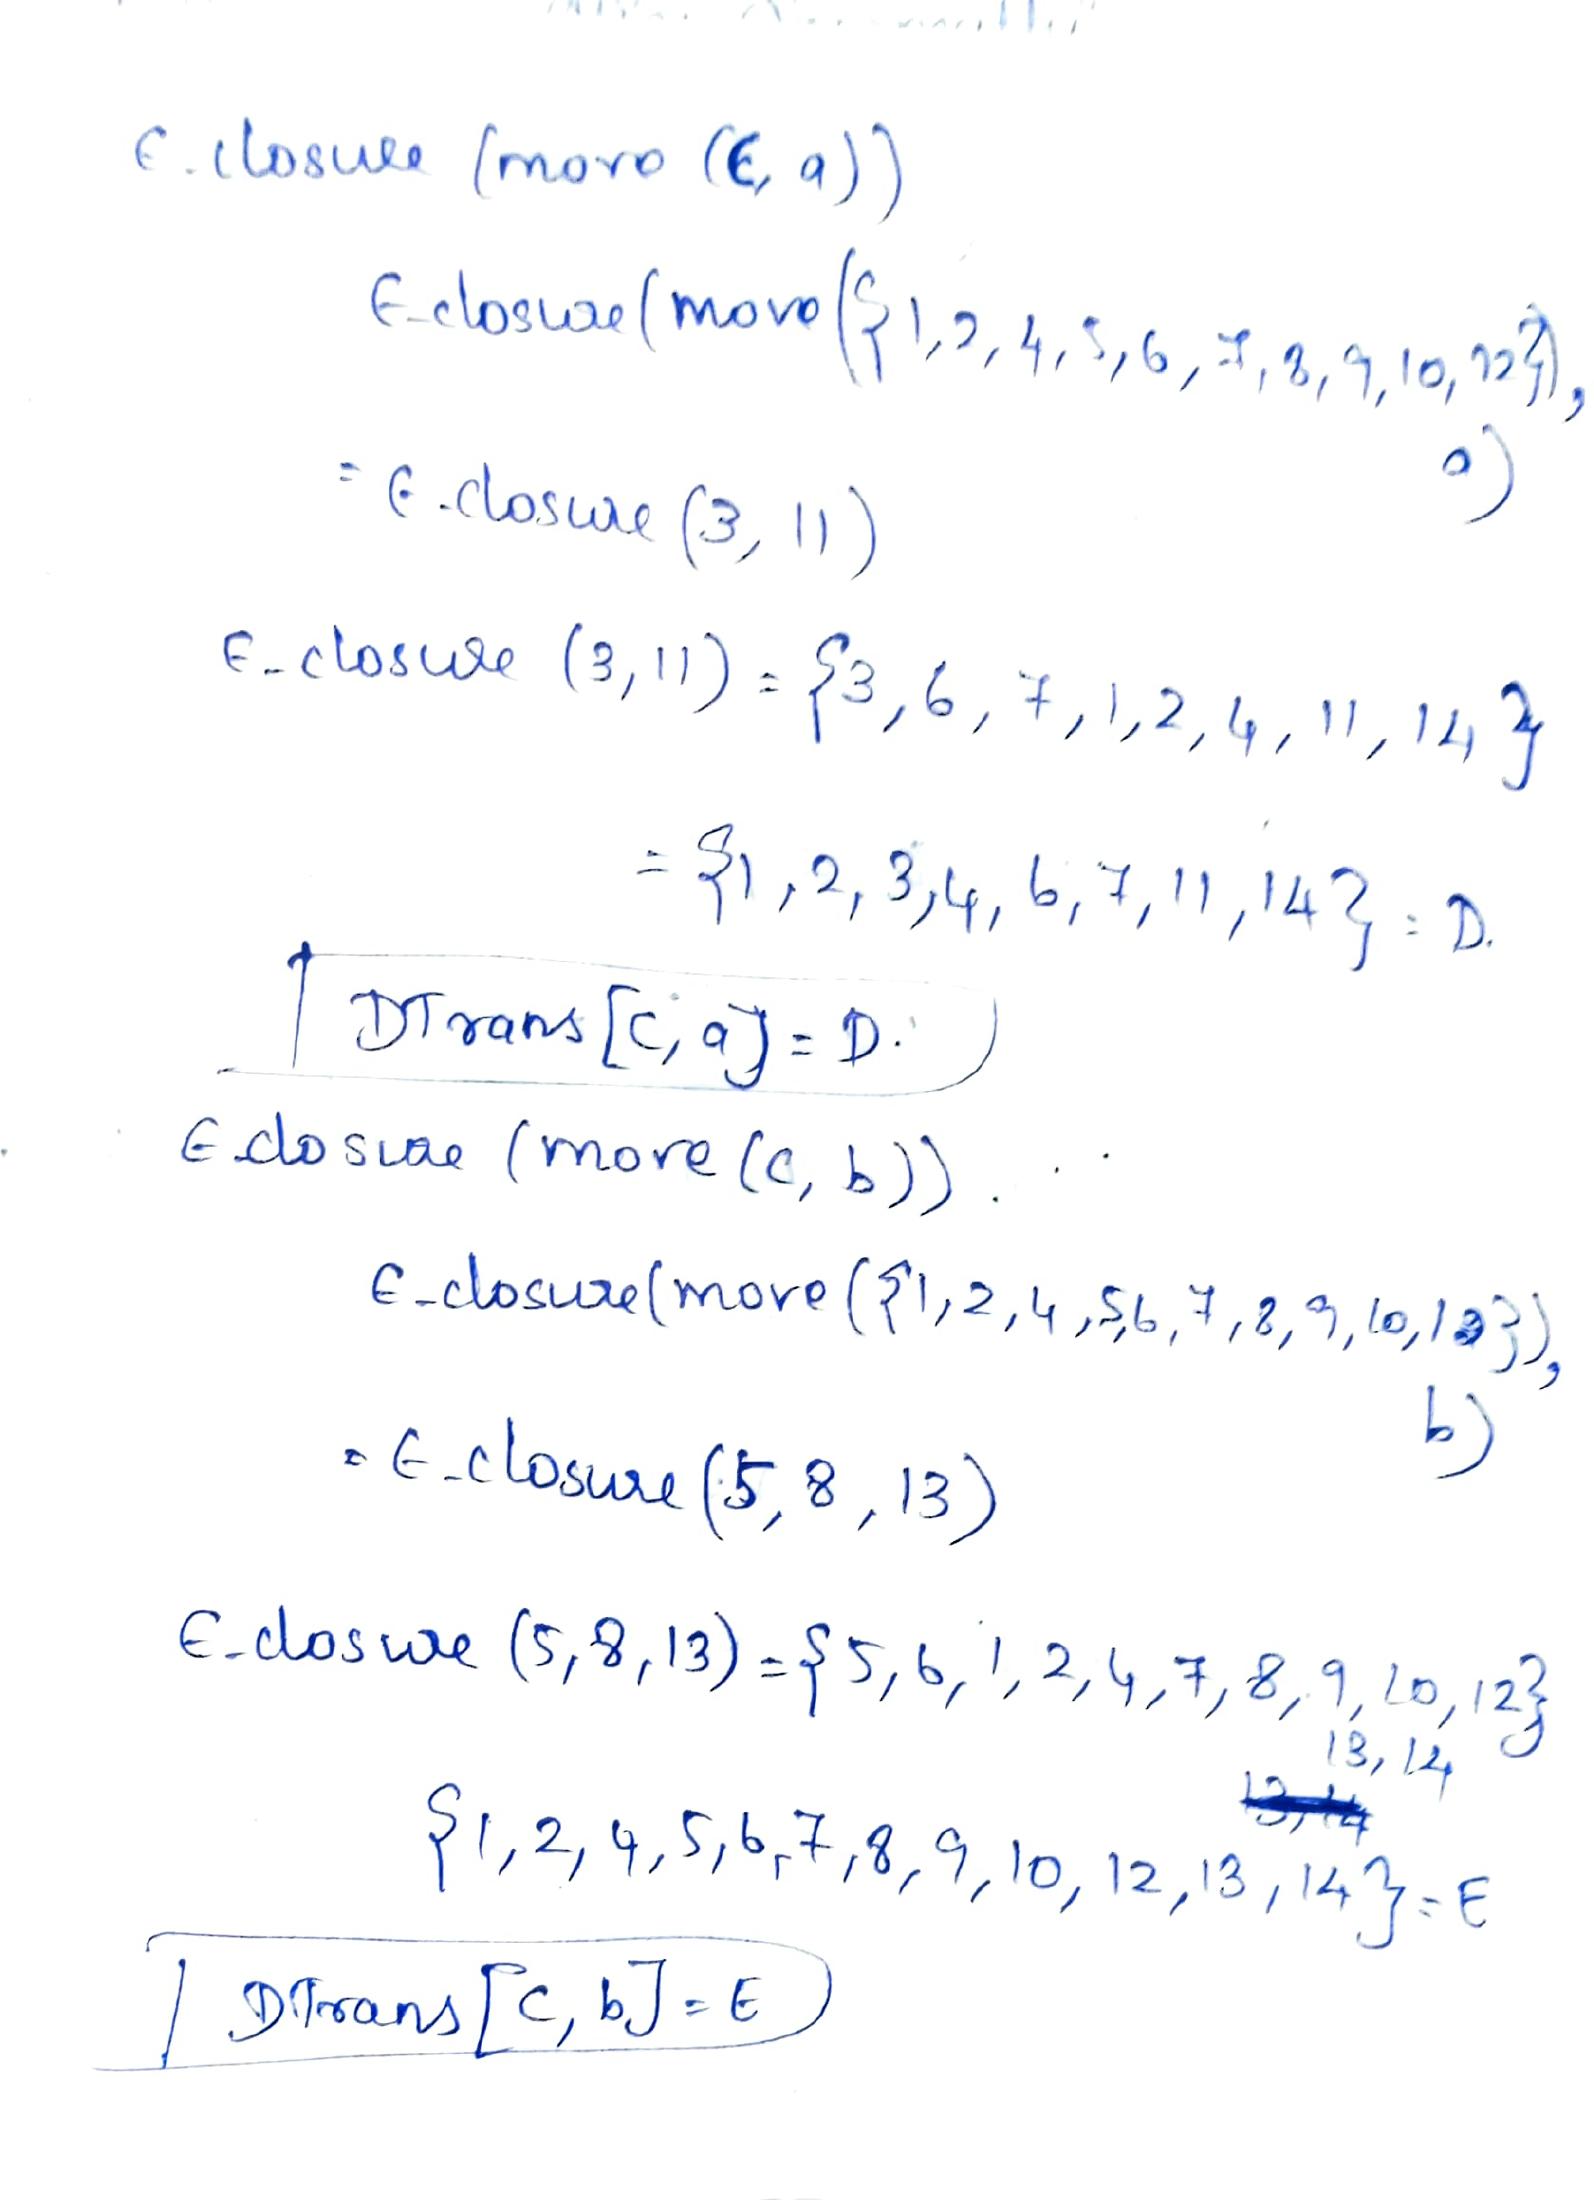 ε-closure (move (C, a))
ε-closure (move ({1,2,4,5,6,7,8,9,10,12}),
a)
= ε-closure (3, 11)
ε-closure (3,11) = {3,6,7,1,2,4,11,14}
= {1,2,3,4,6,7,11,14} = D.
DTrans [C, a] = D.
ε-closure (move (C, b)).
ε-closure (move ({1,2,4,5,6,7,8,9,10,12}),
b)
= ε-closure (5, 8, 13)
ε-closure (5,8,13) = {5,6,1,2,4,7,8,9,10,12}
13, 14
{1,2,4,5,6,7,8,9,10,12,13,14} = E
DTrans [C, b] = E